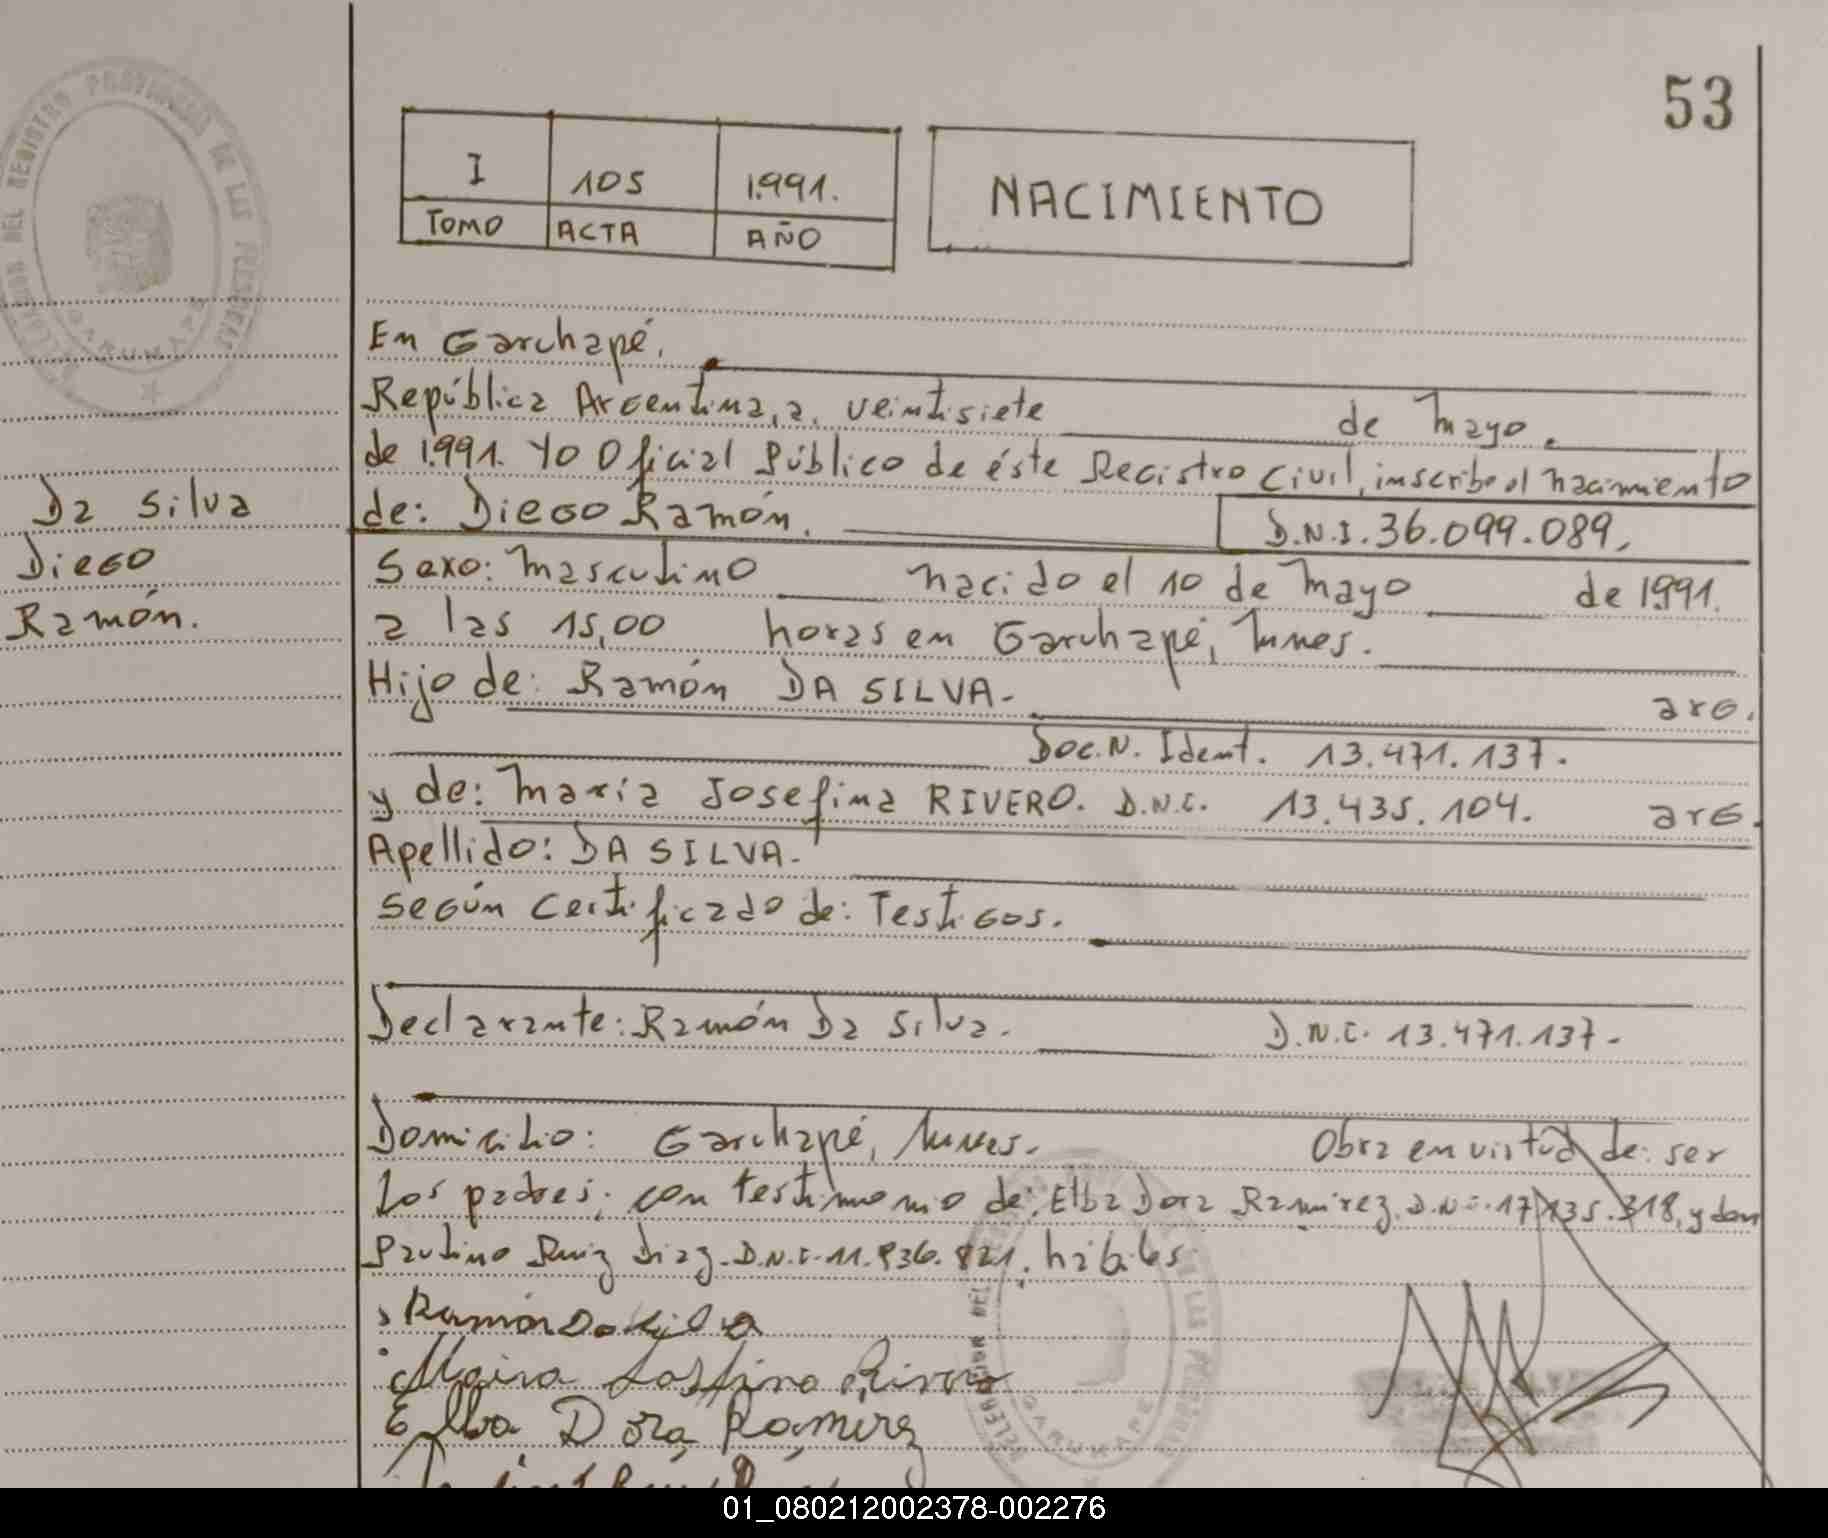 53
I 105 1.991.
TOMO ACTA AÑO
NACIMIENTO
En Garuhapé.
República Argentina, a. veintisiete de Mayo.
de 1.991. Yo Oficial Público de éste Registro Civil, inscribo el Nacimiento
de: Diego Ramón. D.N.I. 36.099.089.
Sexo: Masculino Nacido el 10 de Mayo de 1.991.
a las 15,00 horas en Garuhapé, Mnes.
Hijo de: Ramón DA SILVA.- arg.
Doc. N. Ident. 13.471.137.
y de: Maria Josefina RIVERO. D.N.I. 13.435.104. arg.
Apellido: DA SILVA.-
Según Certificado de: Testigos.
Declarante: Ramón Da Silva. D.N.I. 13.471.137.-
Domicilio: Garuhapé, Mnes. Obra en virtud de: ser
los padres; con testimonio de: Elba Dora Ramirez D.N.I. 17. 318, y don
Paulino Ruiz Diaz. D.N.I. 11.836.821. hábiles
Ramón Da Silva
Elba Dora Ramirez
Da Silva
Diego
Ramón.
DEL REGISTRO PROVINCIAL DE LAS PERSONAS
GARUHAPE
DEL
LAS PERSONAS
GARUHAPE
01_080212002378-002276